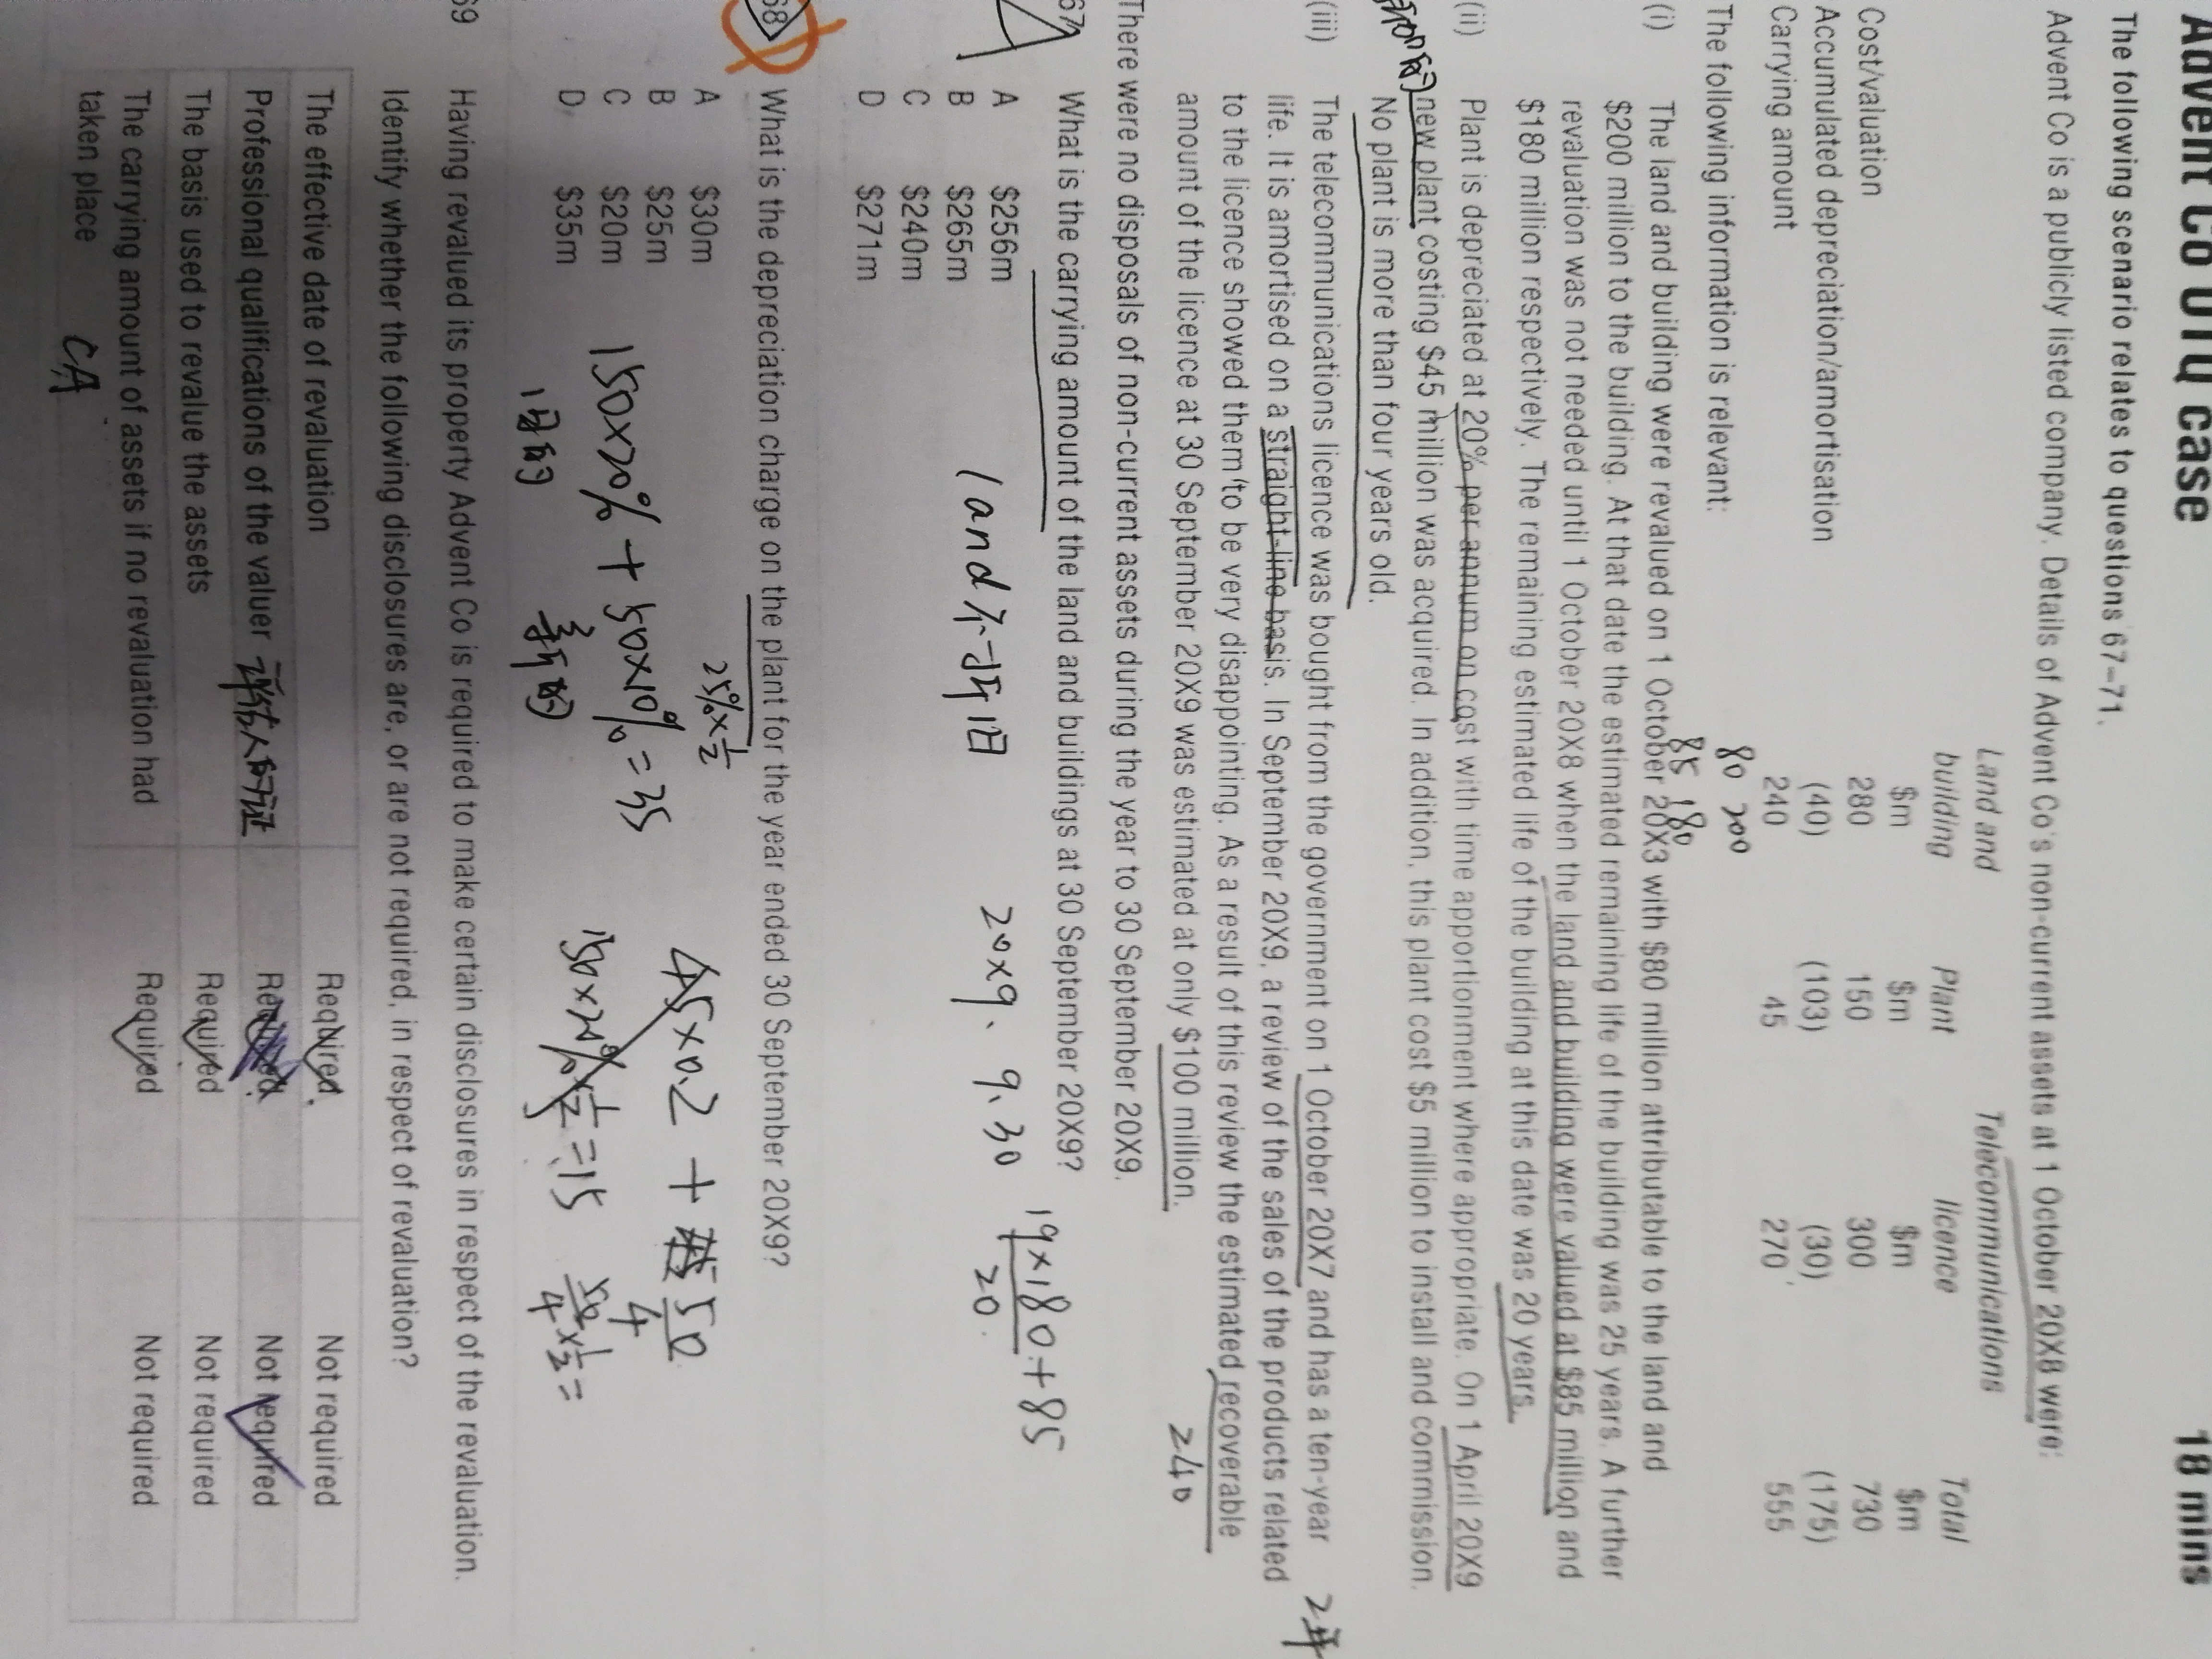 Advent Co OTQ case 18 mins
The following scenario relates to questions 67–71.
Advent Co is a publicly listed company. Details of Advent Co's non-current assets at 1 October 20X8 were:
Land and building Plant Telecommunications licence Total
$m $m $m $m
Cost/valuation 280 150 300 730
Accumulated depreciation/amortisation (40) (103) (30) (175)
Carrying amount 240 45 270 555
80 200
The following information is relevant:
85 180
(i) The land and building were revalued on 1 October 20X3 with $80 million attributable to the land and
$200 million to the building. At that date the estimated remaining life of the building was 25 years. A further
revaluation was not needed until 1 October 20X8 when the land and building were valued at $85 million and
$180 million respectively. The remaining estimated life of the building at this date was 20 years.
(ii) Plant is depreciated at 20% per annum on cost with time apportionment where appropriate. On 1 April 20X9
new plant costing $45 million was acquired. In addition, this plant cost $5 million to install and commission.
No plant is more than four years old.
(iii) The telecommunications licence was bought from the government on 1 October 20X7 and has a ten-year
life. It is amortised on a straight-line basis. In September 20X9, a review of the sales of the products related
to the licence showed them to be very disappointing. As a result of this review the estimated recoverable
amount of the licence at 30 September 20X9 was estimated at only $100 million.
240
There were no disposals of non-current assets during the year to 30 September 20X9.
67 What is the carrying amount of the land and buildings at 30 September 20X9?
A $256m
B $265m
C $240m
D $271m
land 不折旧
20X9、9、30
19×180+85
20
68 What is the depreciation charge on the plant for the year ended 30 September 20X9?
A $30m
B $25m
C $20m
D $35m
25%×1/2
150×20%+50×10%=35
旧的 新的
45×0.2+ 50/4
150×20%×1/2=15
50/4×1/2=
69 Having revalued its property Advent Co is required to make certain disclosures in respect of the revaluation.
Identify whether the following disclosures are, or are not required, in respect of revaluation?
The effective date of revaluation Required Not required
Professional qualifications of the valuer 评估人的证 Required Not required
The basis used to revalue the assets Required Not required
The carrying amount of assets if no revaluation had
taken place Required Not required
CA